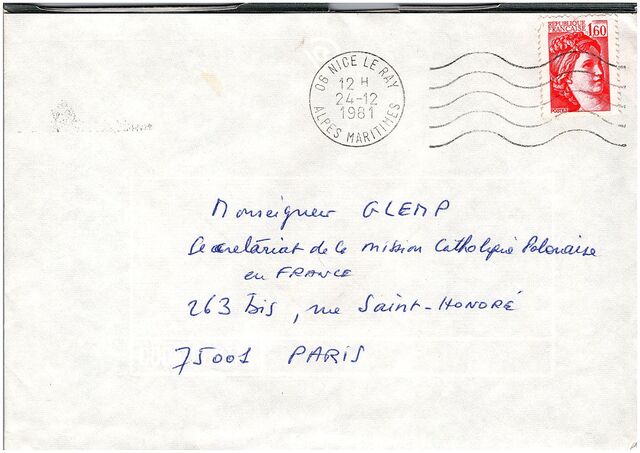 RÉPUBLIQUE
FRANÇAISE 1,60
POSTES
06 NICE LE RAY
12 H
24-12
1981
ALPES MARITIMES
Monseigneur GLEMP
Secretariat de la mission Catholique Polonaise
en FRANCE
263 Bis, rue Saint-HONORÉ
75001 PARIS